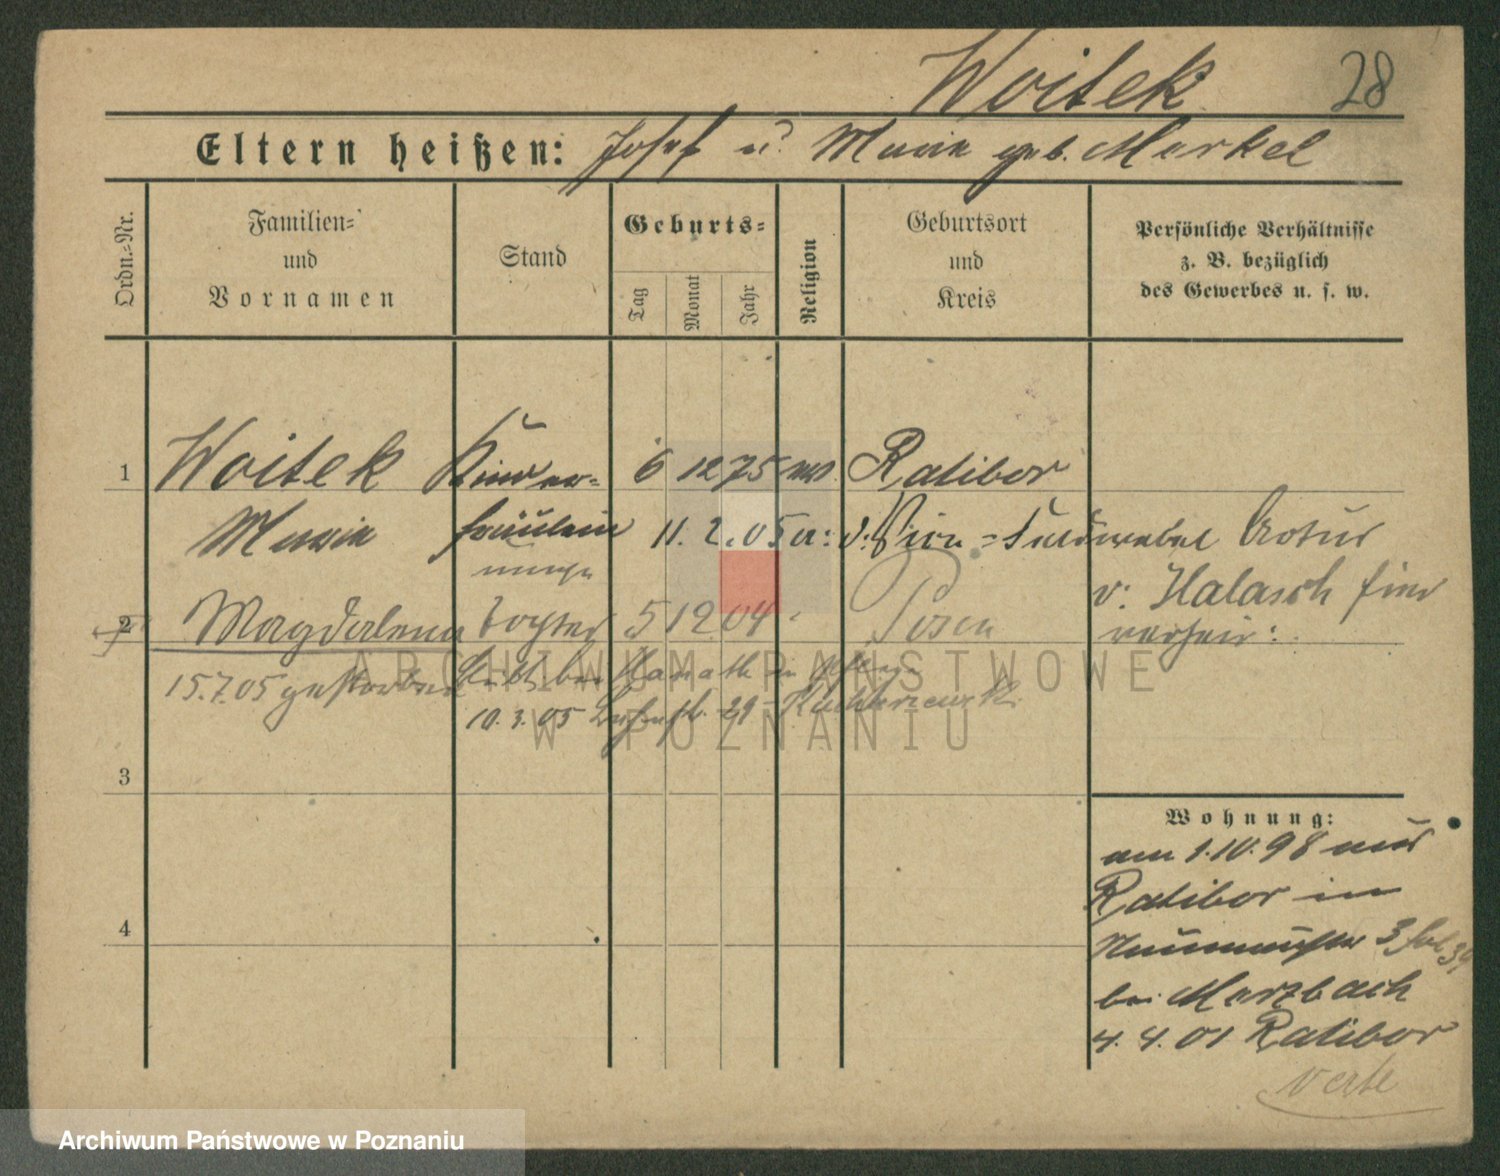 Woitek 28
Eltern heißen: Josef u. Marie geb. Merkel
Ordn.=Nr.
Familien=
und
Vornamen
Stand
Geburts=
Tag
Monat
Jahr
Religion
Geburtsort
und
Kreis
Persönliche Verhältnisse
z. B. bezüglich
des Gewerbes u. s. w.
1 Woitek Kinder= 6 12 75 Ratibor
Marie fräulein 11. 2. 05 Feldwebel Artur
v. Halasch hier
2 Magdalena Tochter 5 12 04 Posen
15.7.05 gestorben
10. 3. 05 29
ARCHIWUM PAŃSTWOWE
W POZNANIU
3
4
Wohnung:
am 1.10.98 aus
Ratibor in
3
bei Merzbach
4. 4. 01 Ratibor
verte
Archiwum Państwowe w Poznaniu